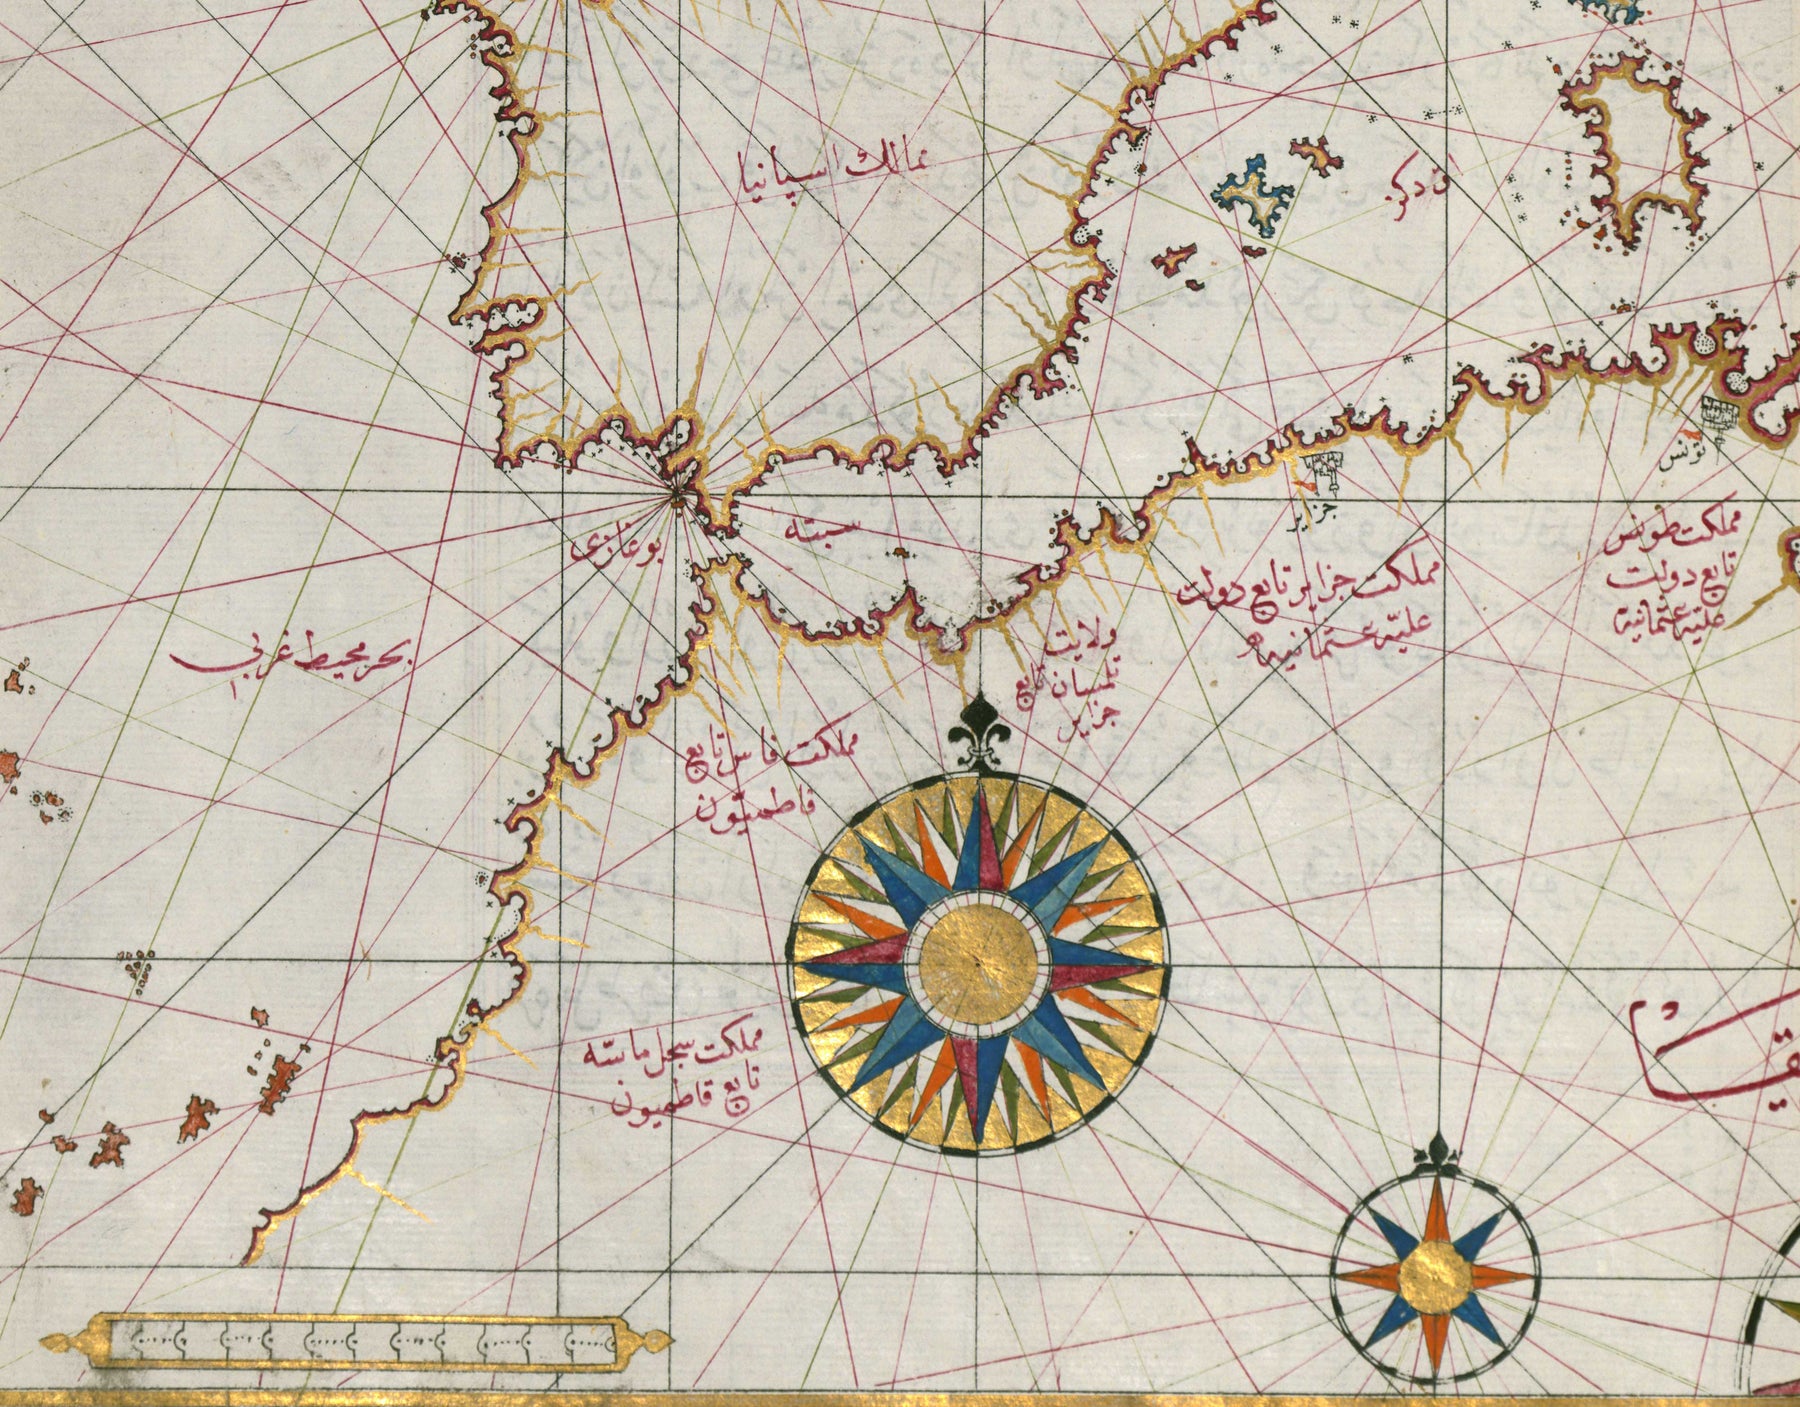 ممالك اسپانيا
آق دكز
سبته
بوغازى
بحر محيط غربى
تونس
جزاير
مملكت طونس
تابع دولت
عليه عثمانيه
مملكت جزاير تابع دولت
عليّه عثمانيه
ولايت
تلمسان تابع
جزاير
مملكت فاس تابع
فاطميّون
مملكت سجل ماسّه
تابع فاطميون